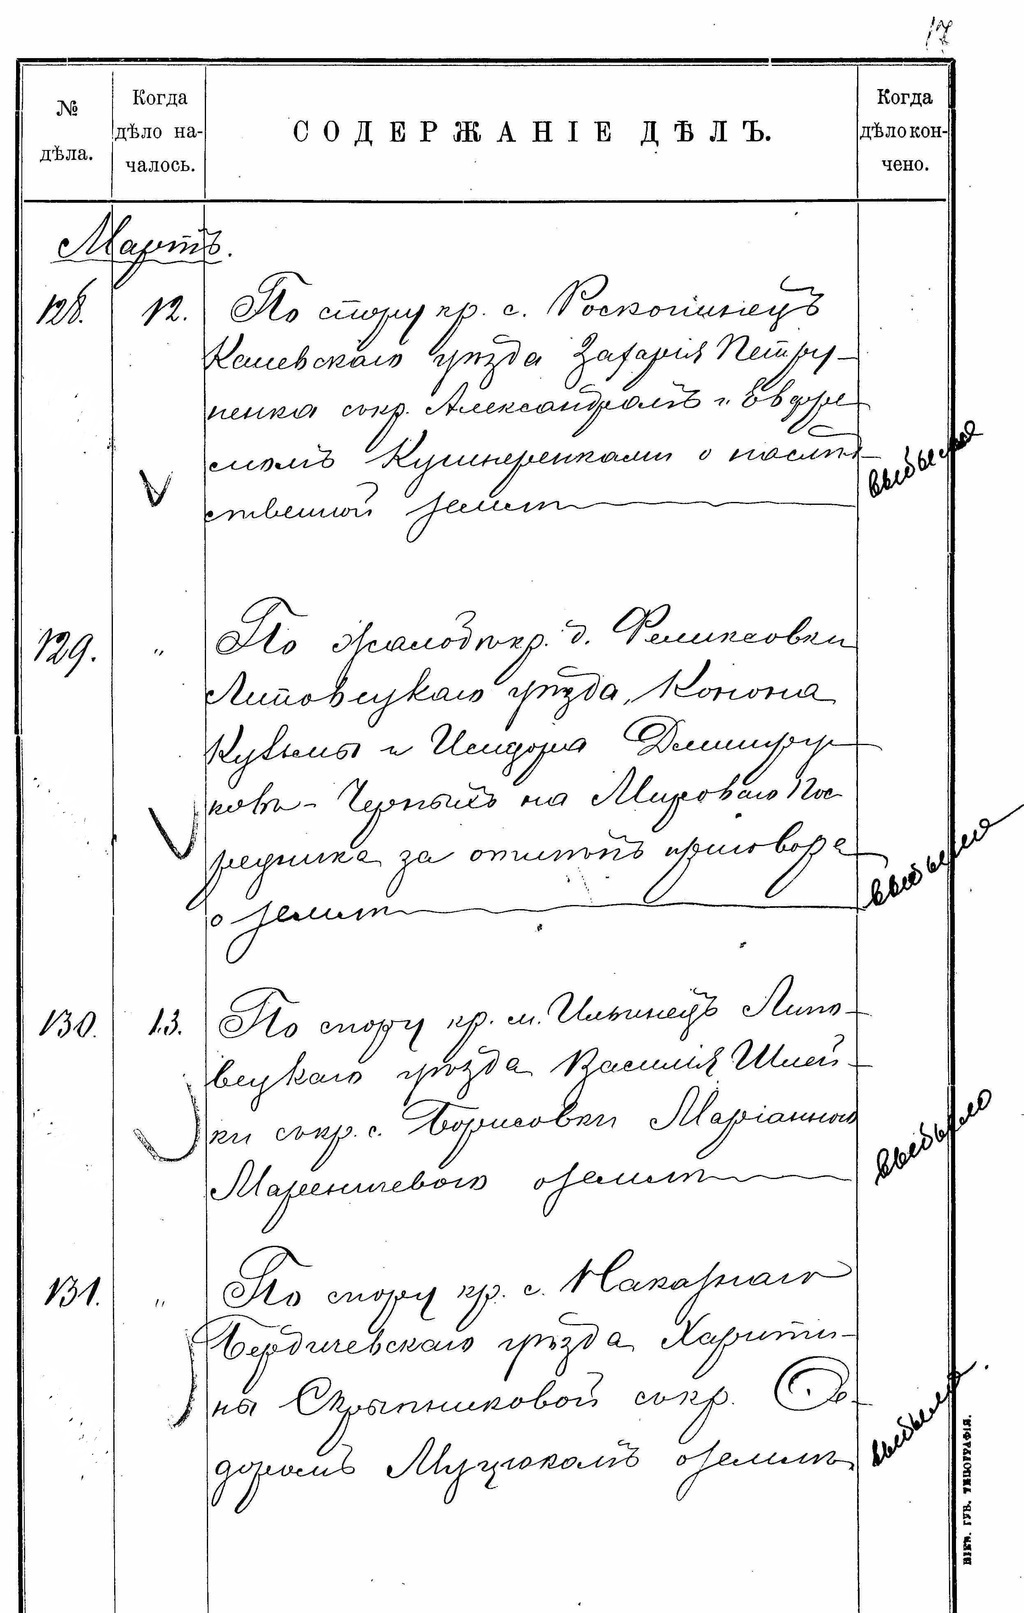 17
№ дѣла.
Когда дѣло на-
чалось.
СОДЕРЖАНІЕ ДѢЛЪ.
Когда дѣло кон-
чено.
Мартъ.
128. 12. По спору кр. с. Роскопинецъ
Каневскаго уѣзда Захарія Петру-
ненка съ кр. Александромъ и Евфре
момъ Кушнеренками о наслѣд-
ственной землѣ
выбыло
129. " По жалобѣ кр. д. Феликсовки
Липовецкаго уѣзда, Конона
Кузьмы и Исидора Дмитру-
ковъ-Черныхъ на Мироваго Пос
редника за отмѣнъ приговора
о землѣ
выбыло
130. 13. По спору кр. м. Ильинецъ Липо-
вецкаго уѣзда Василія Шлей-
ки съ кр. с. Борисовки Маріанною
Мареничевою о землѣ
выбыло
131. " По спору кр. с.
Бердичевскаго уѣзда Харити-
ны Скрыпниковой съ кр. Ѳе-
доромъ о землѣ
выбыло
КІЕВ. ГУБ. ТИПОГРАФІЯ.